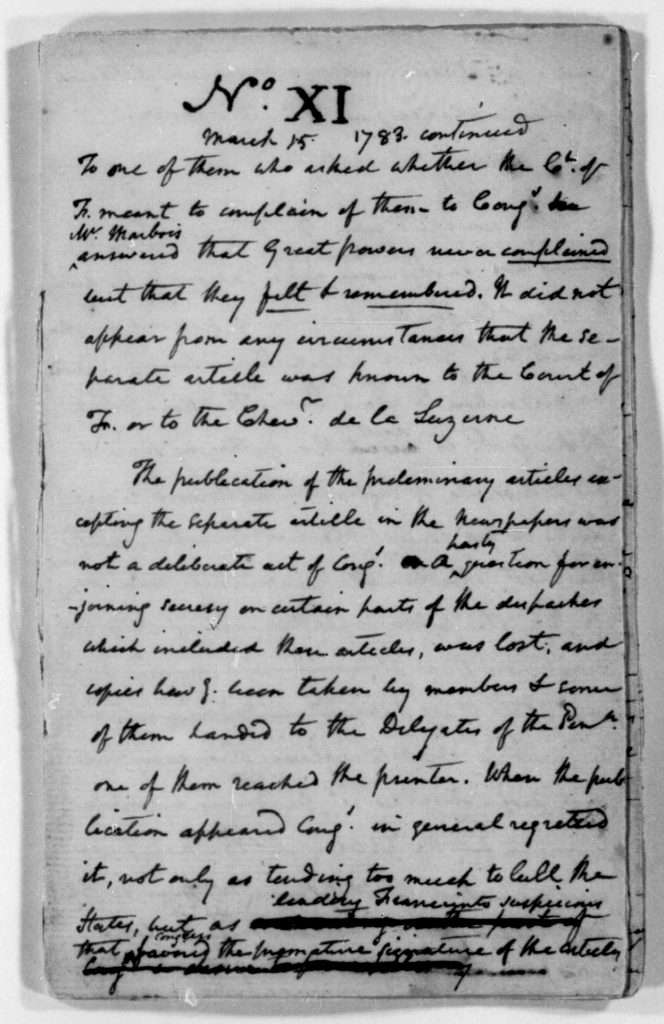 No. XI
March 15. 1783. continued
To one of them who asked whether the Ct. of
Fr. meant to complain of them to Congs.
Mr. Marbois
answered that Great powers never complained
but that they felt & remembered. It did not
appear from any circumstances that the se-
parate article was known to the Court of
Fr. or to the Chevr. de la Luzerne
The publication of the preliminary articles ex-
cepting the separate article in the Newspapers was
not a deliberate act of Congs. A hasty question for en-
-joining secresy on certain parts of the despatches
which included these articles, was lost, and
copies havg. been taken by members & some
of them handed to the Delegates of the Pena.
one of them reached the printer. When the pub
lication appeared Congs. in general regretted
it, not only as tending too much to lull the
States, but as leading France into suspicions
that Congress favored the premature signature of the articles